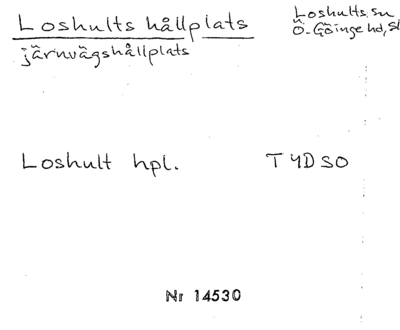 Loshults hållplats
järnvägshållplats
Loshults sn
Ö. Göinge hd, Sk
Loshult hpl. T 4D SO
Nr 14530